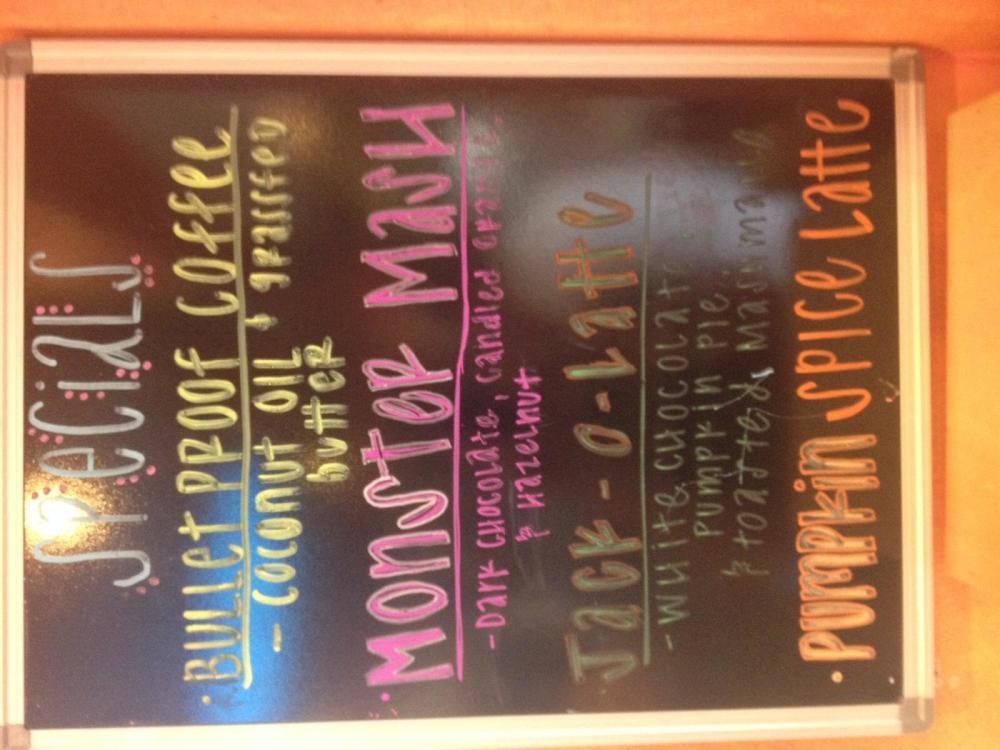 SPECIALS
• BULLET PROOF COFFEE
- COCONUT OIL & GRASSFED
BUTTER
• MONSTER MASH
- DARK CHOCOLATE, CANDIED ORANGE,
& HAZELNUT
• JACK-O-LATTE
- WHITE CHOCOLATE,
PUMPKIN PIE,
& TOASTED MARSHMALLOW
• PUMPKIN SPICE LATTE